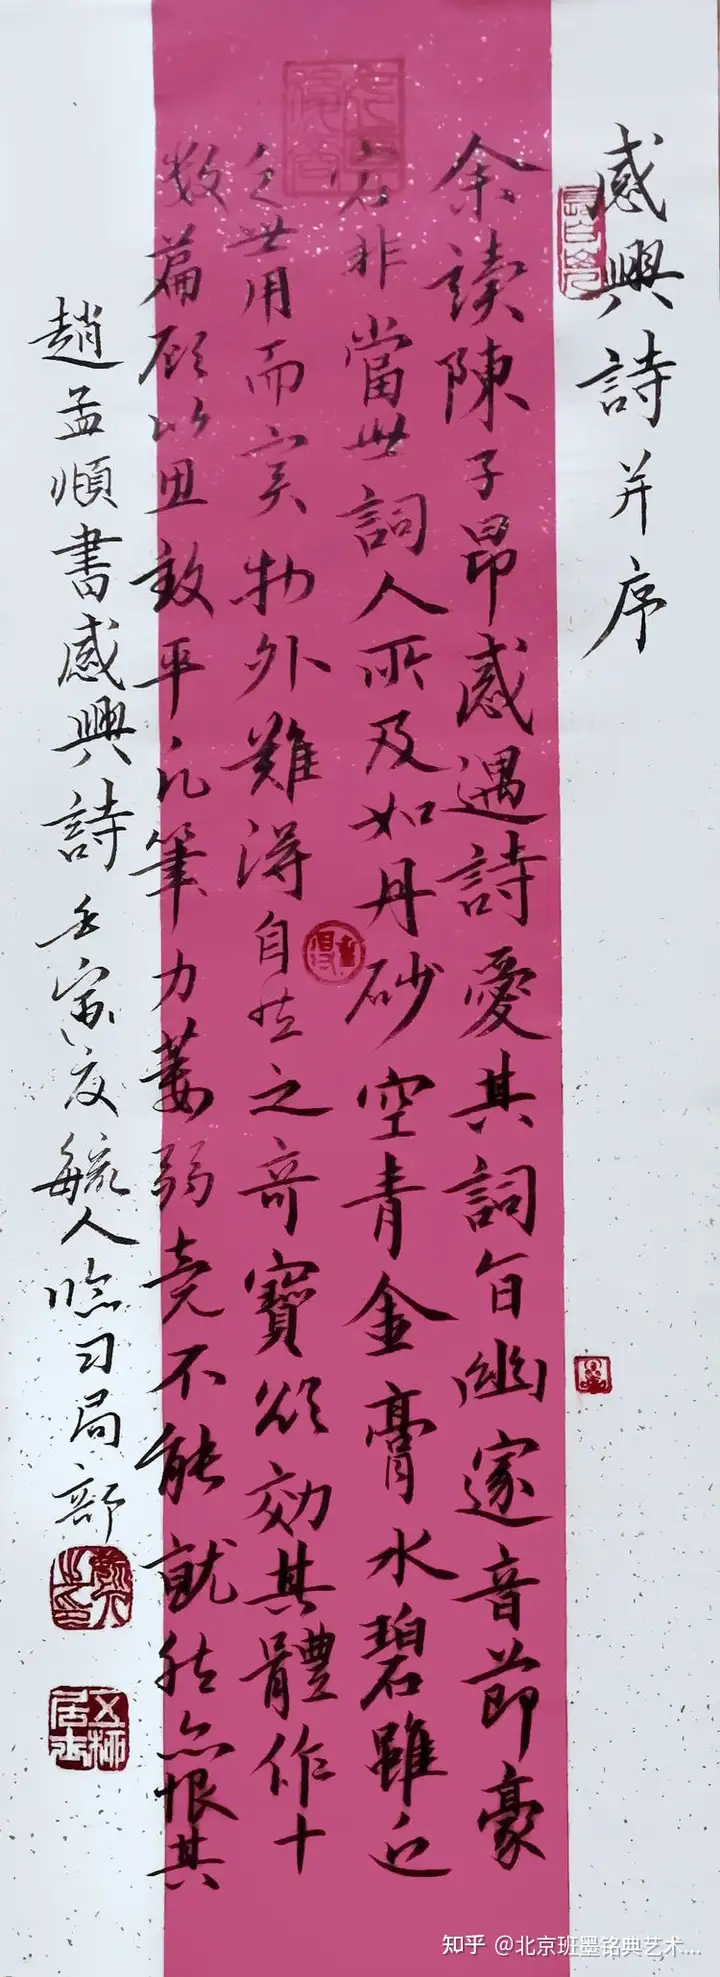 感興詩并序
余讀陳子昂感遇詩愛其詞旨幽邃音節豪
宕非當世詞人所及如丹砂空青金膏水碧雖近
乏世用而實物外難得自然之奇寶欲効其體作十
數篇顧以思致平凡筆力萎弱竟不能就然亦恨其
趙孟頫書感興詩 壬寅夏毓人臨習局部
知乎 @北京班墨铭典艺术...